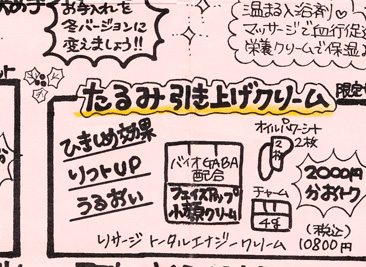 お手入れを
冬バージョンに
変えましょう!!
温まる入浴剤♡
マッサージで血行促
栄養クリームで保湿
たるみ引き上げクリーム
限定
ひきしめ効果
リフトUP
うるおい
バイオGABA
配合
フェイスアップ
小顔クリーム
オイルパワーシート
2枚
2枚
チャーム
4g
2000円
分おトク
リサージ トータルエナジークリーム
(税込)
10800円